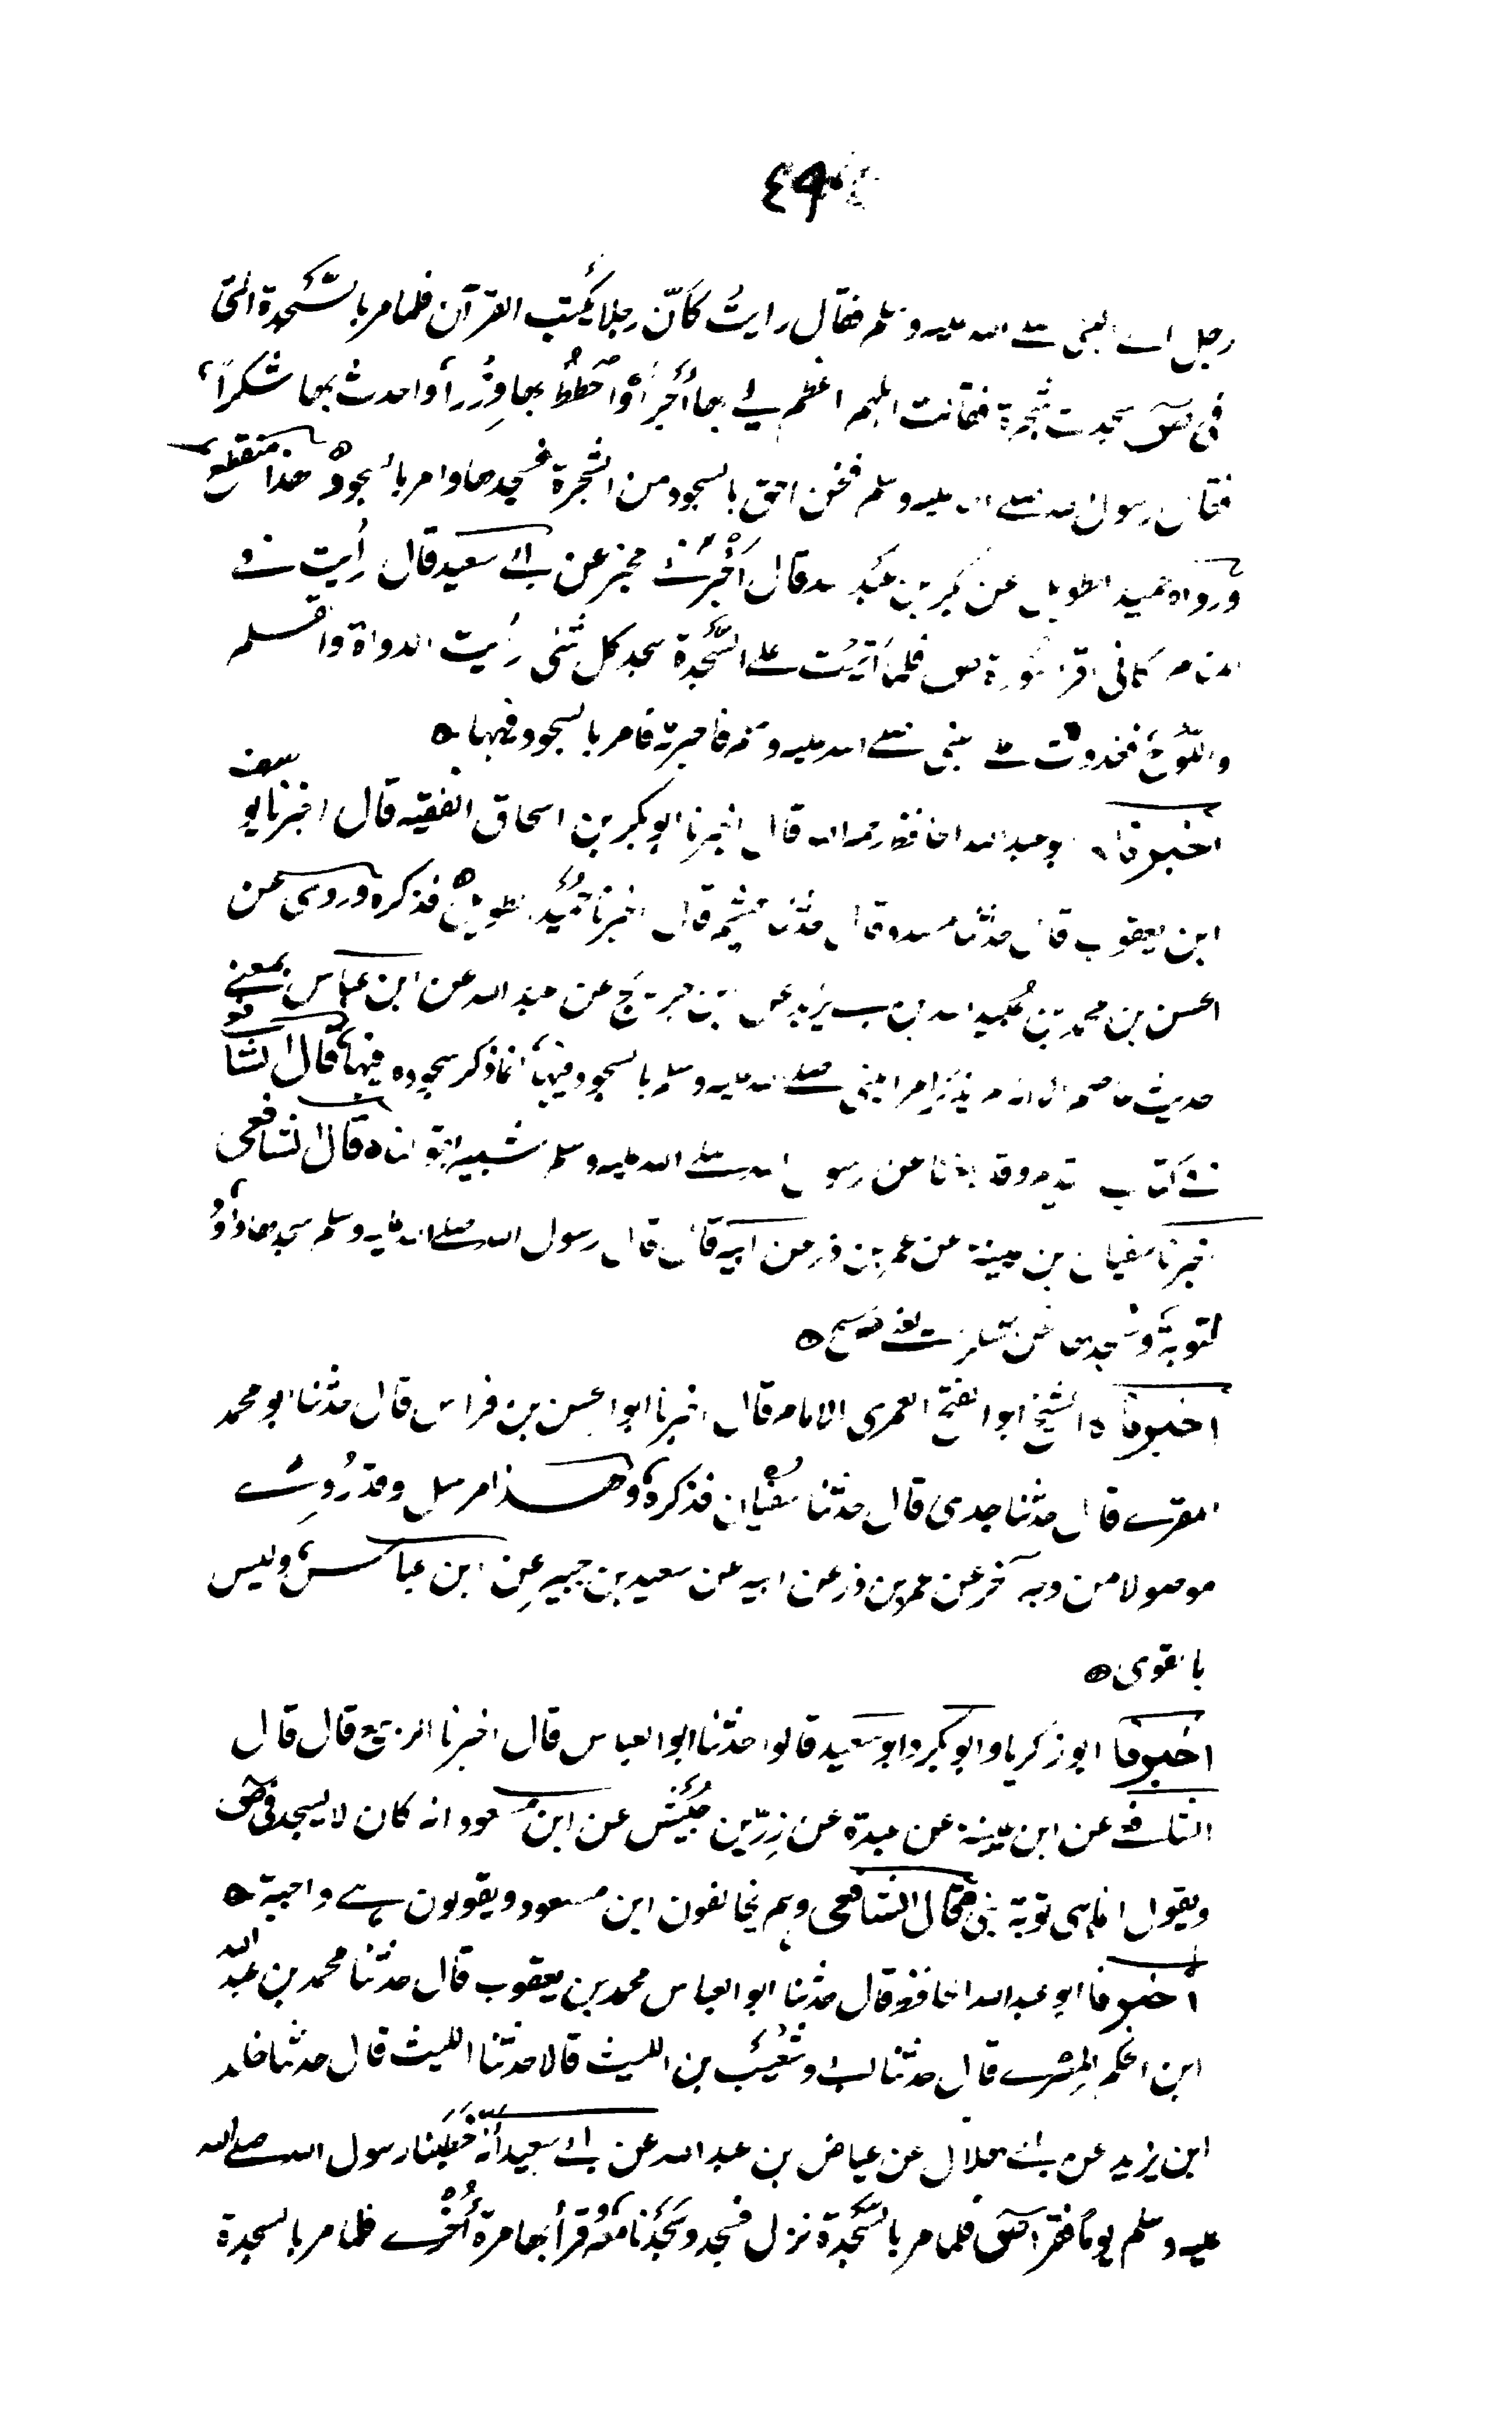 رجل الى النبي صلى الله عليه وسلم فقال رايتُ كأنّ رجلا يكتب القرآن فلما مر بالسَّجدة التي
في صٓ سجدت شجرة فقالت اللهم اعظم لي بها أجراً واحطُط بها وِزْراً واحدث بها شكراً
فقال رسول الله صلى الله عليه وسلم فنحن احق بالسجود من الشجرة فسجدها وامر بالسجود هذا منقطع
ورواه حميد الطويل عن بكر بن عبد الله قال أخبرني مخبر عن ابي سعيد قال رأيت في
المنام كاني اقرأ سُورة ص فلما أتيت على السَّجدة سجد كل شئ رأيت الدواة والقلم
واللّوح فغدوت على النبي صلى الله عليه وسلم فاخبرته فامر بالسجود فيها
اخبرنا ابو عبد الله الحافظ رحمه الله قال اخبرنا ابو بكر بن اسحاق الفقيه قال اخبرنا يوسف
ابن يعقوب قال حدثنا مسدد قال حدثنا هشيم قال اخبرنا حُمَيْد الطويل فذكره وروى عن
الحسن بن محمد بن عُبيد الله بن ابي يزيد عن ابن جريج عن عبيد الله عن ابن عباس بمعنى
حديث عاصم الا انه لم يذكر امر النبي صلى الله عليه وسلم بالسجود فيها انما ذكر سجوده فيها قال الشافعي
في كتاب القديم وقد بلغنا عن رسول الله صلى الله عليه وسلم شبيه بقولنا قال الشافعي
اخبرنا سفيان بن عيينة عن عمر بن ذر عن ابيه قال قال رسول الله صلى الله عليه وسلم سجدها داوُد
لتوبة ونسجدها نحن شكرا يعني ص
اخبرنا الشيخ ابو الفتح العمري الامام قال اخبرنا ابو الحسن بن فراس قال حدثنا ابو محمد
المقرى قال حدثنا جدي قال حدثنا سفيان فذكره وهذا مرسل وقد رُوِي
موصولا من وجه آخر عن عمر بن ذر عن ابيه عن سعيد بن جبير عن ابن عباس وليس
بالقوى
اخبرنا ابو زكريا وابو بكر وابو سعيد قالوا حدثنا ابو العباس قال اخبرنا الربيع قال قال
الشافعي عن ابن عيينة عن عبدة عن زِرّ بن حُبَيْش عن ابن مسعود انه كان لا يسجد في صٓ
ويقول انما هي توبة نبي قال الشافعي وهم يخالفون ابن مسعود ويقولون هي واجبة
اخبرنا ابو عبد الله الحافظ قال حدثنا ابو العباس محمد بن يعقوب قال حدثنا محمد بن عبد الله
ابن الحكم المصرى قال حدثنا ابي وشُعَيْب بن الليث قالا حدثنا الليث قال حدثنا خالد
ابن يزيد عن ابن ابي هلال عن عياض بن عبد الله عن ابي سعيد أنّه خطبنا رسول الله صلى الله
عليه وسلم يوماً فقرأ صٓ فلما مر بالسَّجدة نزل فسجد وسَجَدْنا معه وقرأ بها مرة أُخْرى فلما مر بالسجدة